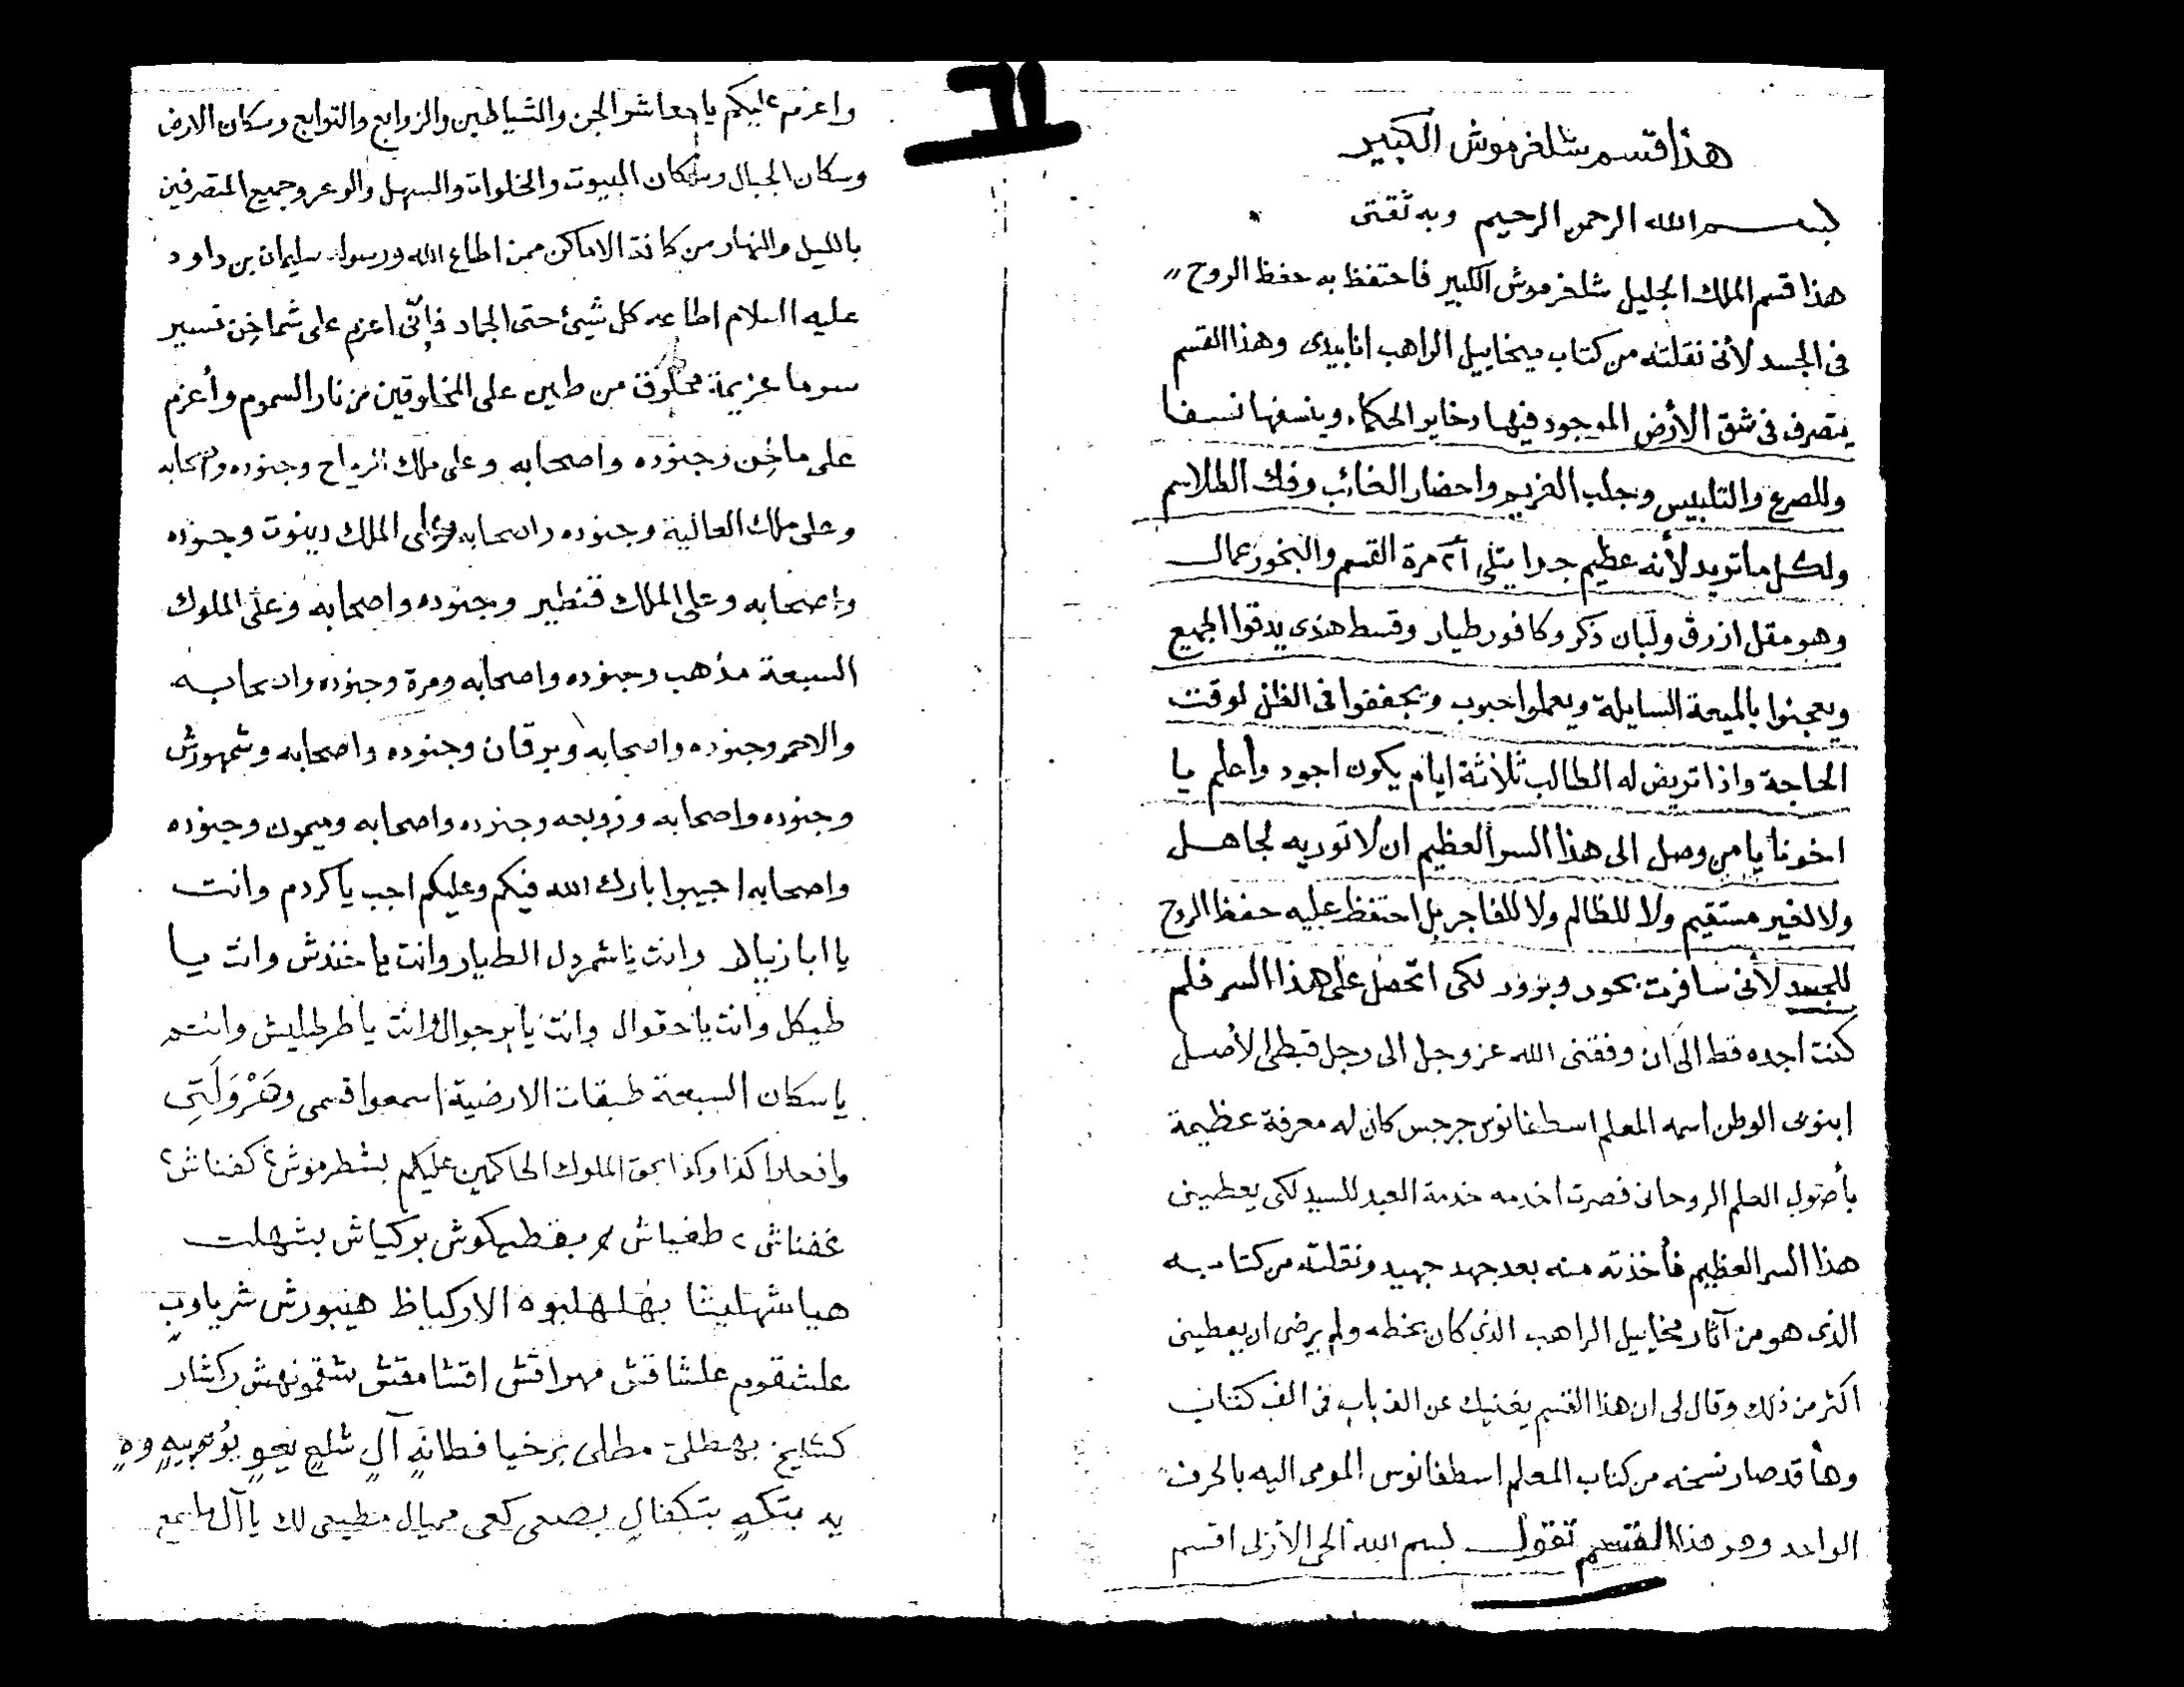 هذا قسم شلخرموش الكبير
بسم الله الرحمن الرحيم وبه ثقتى
هذا قسم الملك الجليل شلخرموش الكبير فاحتفظ به حفظ الروح
فى الجسد لأنى نقلته من كتاب ميخاييل الراهب انابيدى وهذا القسم
يتصرف فى شق الأرض الموجود فيها دخاير الحكماء وينسفها نسفا
وللصرع والتلبيس وجلب الغريم واحضار الغائب وفك الطلاسم
ولكل ما تريد لأنه عظيم جدا يتلى ٢١ مرة القسم والبخور عمال
وهو مقل ازرق ولبان ذكر وكافور طيار وقسط هندى يدقوا الجميع
ويعجنوا بالميعة السايلة ويعملوا حبوب ويجففوا فى الظل لوقت
الحاجة واذا تريض له الطالب ثلاثة ايام يكون اجود واعلم يا
اخونا يا من وصل الى هذا السر العظيم ان لا توريه لجاهل
ولا لغير مستقيم ولا للظالم ولا للفاجر بل احتفظ عليه حفظ الروح
للجسد لأنى سافرت بحور وبرور لكى اتحصل على هذا السر فلم
كنت اجده قط الى ان وفقنى الله عز وجل الى رجل قبطى الأصل
ابنوبى الوطن اسمه المعلم اسطفانوس جرجس كان له معرفة عظيمة
بأصول العلم الروحانى فصرت اخدمه خدمة العبد للسيد لكى يعطينى
هذا السر العظيم فأخذته منه بعد جهد جهيد ونقلته من كتابه
الذى هو من آثار مخاييل الراهب الذى كان بخطه ولم يرضى ان يعطينى
اكثر من ذلك وقال لى ان هذا القسم يغنيك عن الف باب فى الف كتاب
وها قد صار نسخه من كتاب المعلم اسطفانوس المومى اليه بالحرف
الواحد وهو هذا القسم تقول بسم الله الحى الأزلى اقسم
واعزم عليكم يا معاشر الجن والشياطين والزوابع والتوابع وسكان الارض
وسكان الجبال وسكان البيوت والخلوات والسهل والوعر وجميع المتصرفين
بالليل والنهار من كافة الاماكن ممن اطاع الله ورسوله سليمان بن داود
عليه السلام اطاعه كل شيئ حتى الجماد فإنّى اعزم على شماخن تسير
سوما عزيمة مخلوق من طين على المخلوقين من نار السموم وأعزم
على ماخن وجنوده واصحابه وعلى ملك الرياح وجنوده واصحابه
وعلى ملك العالية وجنوده واصحابه وعلى الملك دينوت وجنوده
واصحابه وعلى الملك قنطير وجنوده واصحابه وعلى الملوك
السبعة مذهب وجنوده واصحابه ومرة وجنوده واصحابه
والاحمر وجنوده واصحابه وبرقان وجنوده واصحابه وشمهورش
وجنوده واصحابه وزوبعه وجنوده واصحابه وميمون وجنوده
واصحابه اجيبوا بارك الله فيكم وعليكم اجب يا كردم وانت
يا ابا زيبالا وانت يا شمردل الطيار وانت يا خندش وانت يا
طيكل وانت يا حقوال وانت يا برجوال وانت يا طرطليش وانتم
يا سكان السبعة طبقات الارضية اسمعوا قسمى وهَرْوَلَتِى
وافعلوا كذا وكذا بحق الملوك الحاكمين عليكم بشطرموش ٢ كفناش ٢
غفناش ٢ طغياش ٢ بقطيكوش بركياش بشهلت
هيا شهليثا بهلهليوه الاركياظ هنبورش شرياوب
علشقوم علشاقش مهراقش اقشا مقش شقمونهش راكشار
كشليخ بهطلى مطلى برخيا فطانه آل شلع يعو يوبيه وه
يه بتكه بتكفال بصعى كعى مميال مطيعى لك يا آل